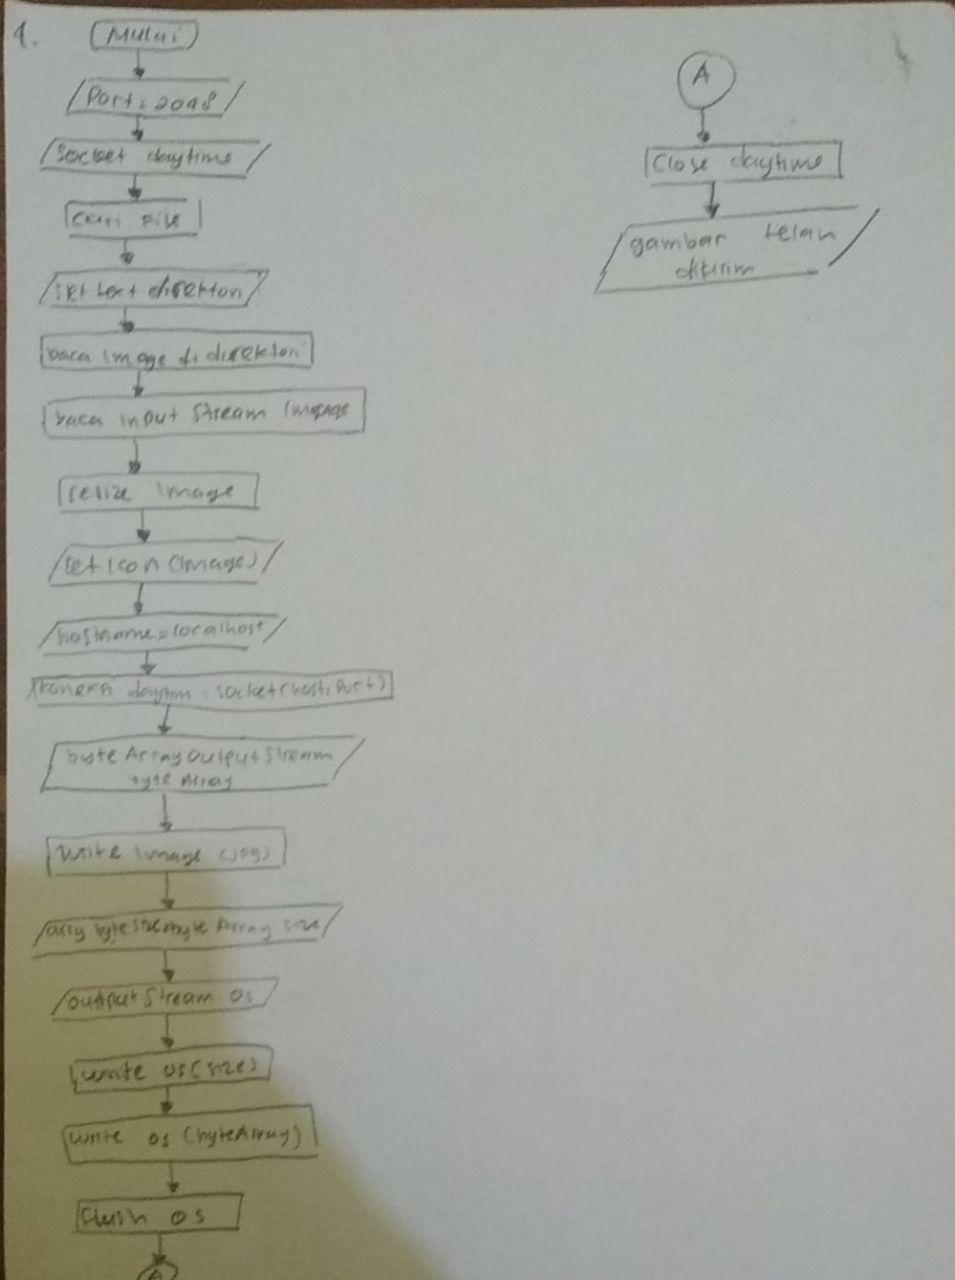 4.
Mulai
Port = 2048
Socket daytime
Cari File
Set text direktori
baca image di direktori
baca input Stream Image
resize image
set Icon (Image)
hostname = localhost
koneksi daytim = socket (host, Port)
byte Array Output Stream
byte Array
Write image (jpg)
byte Array size
output Stream os
Write os (size)
Write os (byteArray)
Flush os
A
A
Close daytime
gambar telah
dikirim